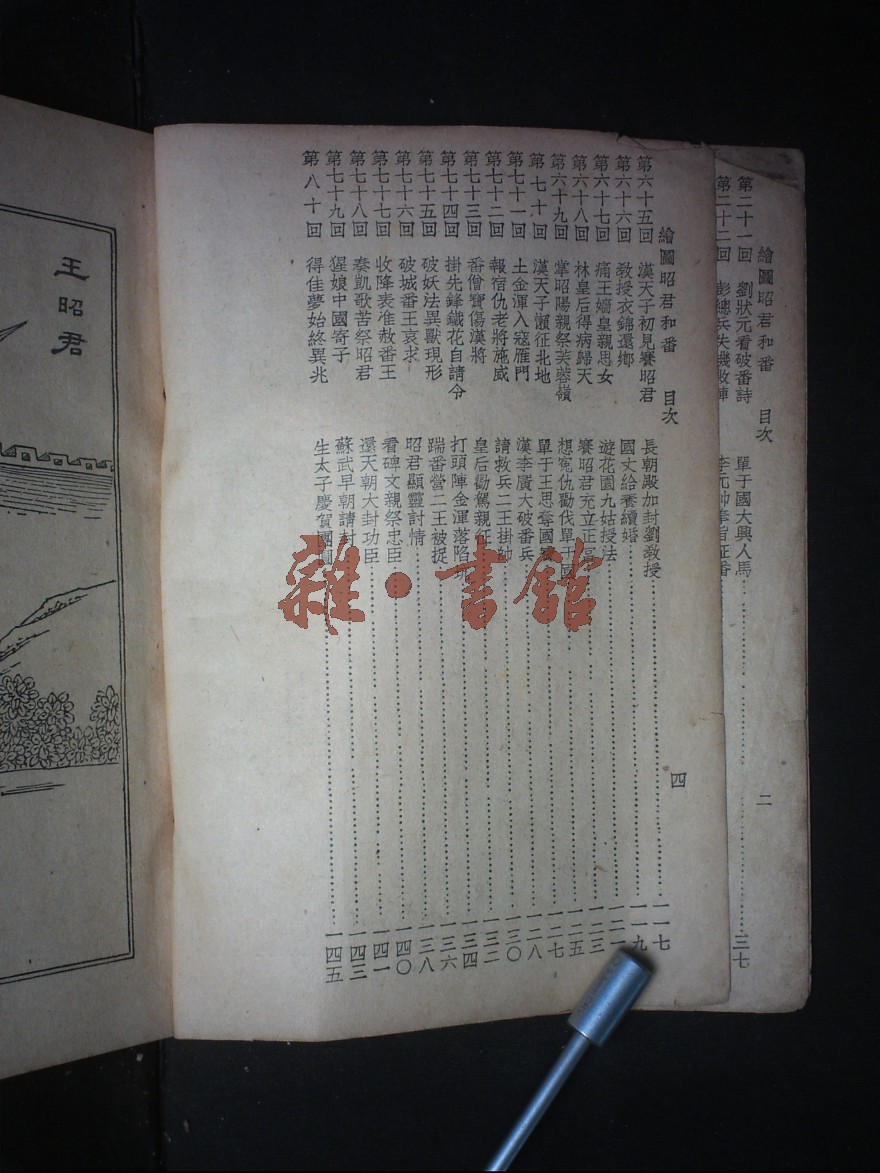 繪圖昭君和番 目次 二
第二十一回 劉狀元看破番詩 單于國大興人馬 三七
第二十二回 彭總兵失機收陣 李元帥奉旨征番
繪圖昭君和番 目次 四
第六十五回 漢天子初見賽昭君 長朝殿加封劉教授 一一七
第六十六回 教授衣錦還鄉 國丈給養續婚 一一九
第六十七回 痛王嬙皇親思女 遊花園九姑授法 一二一
第六十八回 林皇后得病歸天 賽昭君充立正宮 一二三
第六十九回 掌昭陽親祭芙蓉嶺 想寃仇勸伐單于國 一二五
第七十回 漢天子懶征北地 單于王思奪國 一二七
第七十一回 土金渾入寇雁門 漢李廣大破番兵 一二八
第七十二回 報宿仇老將施威 請救兵二王掛帥 一三〇
第七十三回 番僧寶傷漢將 皇后勸駕親征 一三二
第七十四回 掛先鋒鐵花自請令 打頭陣金渾落陷坑 一三四
第七十五回 破妖法異獸現形 踹番營二王被捉 一三六
第七十六回 破城番王哀求 昭君顯靈討情 一三八
第七十七回 收降表准赦番王 看碑文親祭忠臣 一四〇
第七十八回 奏凱歌苦祭昭君 還天朝大封功臣 一四一
第七十九回 猩娘中國寄子 蘇武早朝請封 一四三
第八十回 得佳夢始終異兆 生太子慶賀團圓 一四五
王昭君
雜·書館